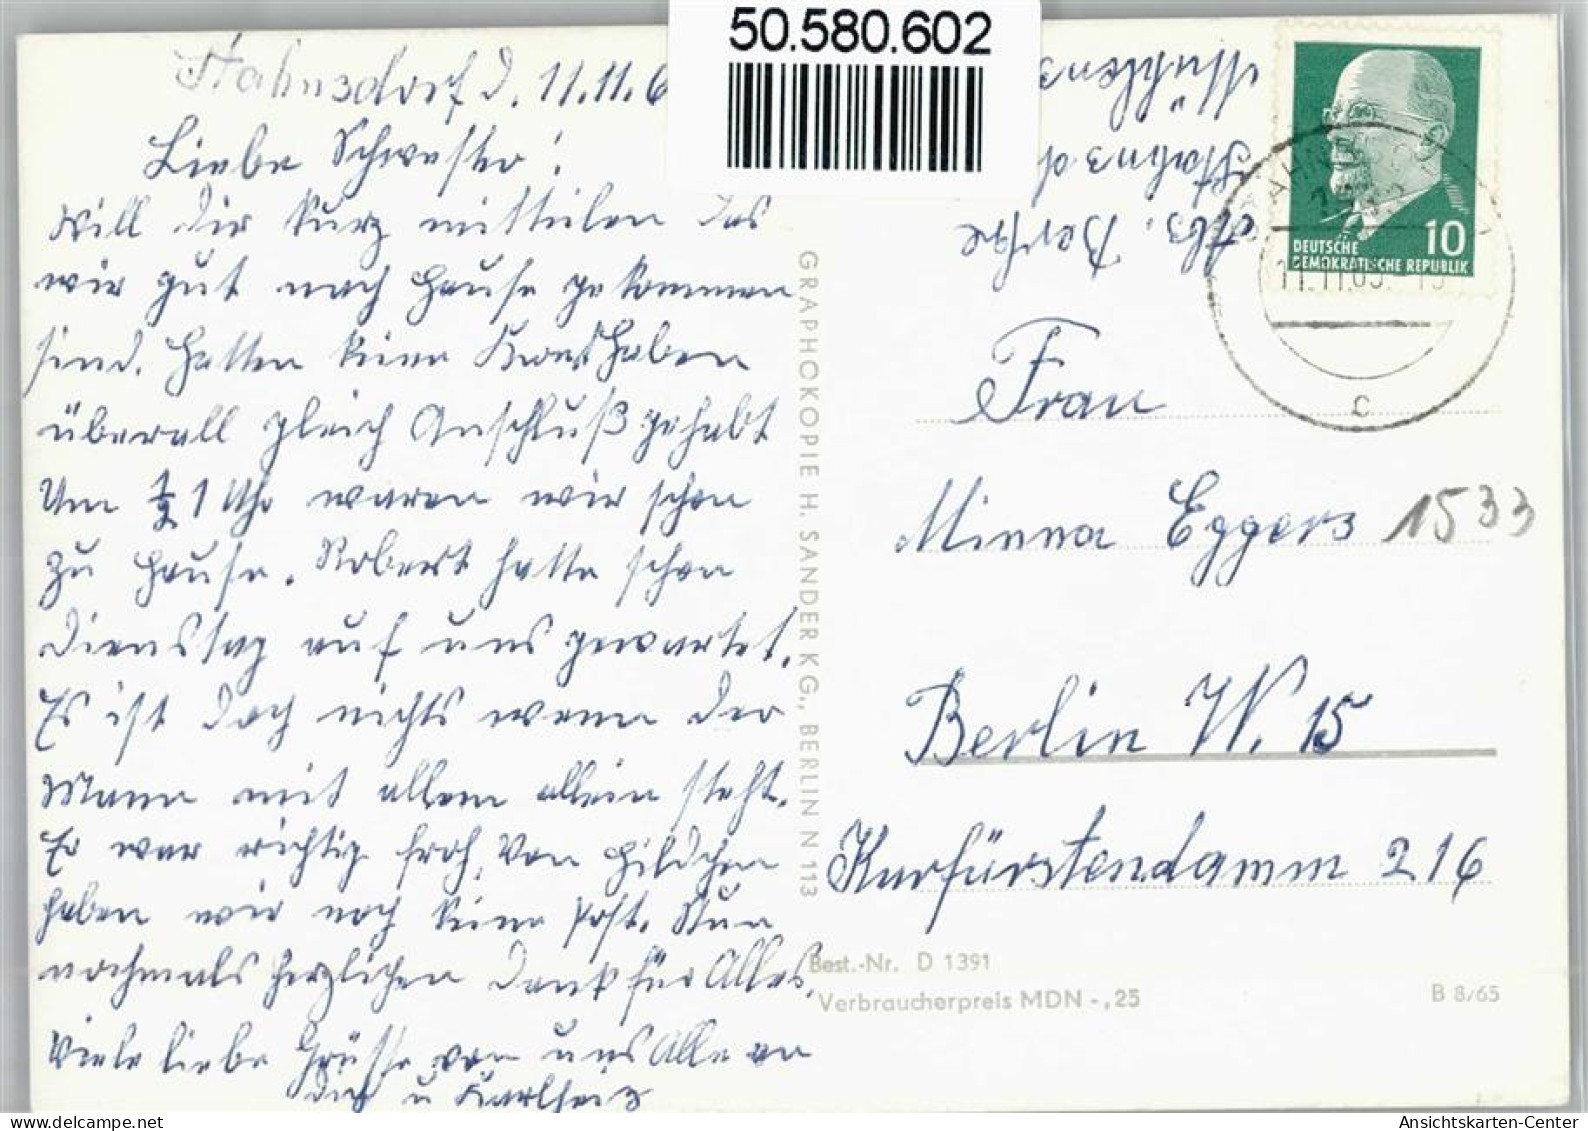 50.580.602
Stahnsdorf d. 11.11.6
Liebe Schwester!
Will dir kurz mitteilen das
wir gut nach Hause gekommen
sind. Hatten keine haben
überall gleich Anschluß gehabt
Um ½ 1 Uhr waren wir schon
zu Hause. Robert hatte schon
Dienstag auf uns gewartet.
Es ist doch nichts wenn der
Mann mit allem allein steht.
Er war richtig froh. Von Hildchen
haben wir noch keine Post. Nun
nochmals herzlichen Dank für Alles.
Viele liebe Grüße von uns Alle an
dich u Karlheinz
GRAPHOKOPIE H. SANDER KG., BERLIN N 113
Abs. Berthe
Stahnsd
Mühlens
DEUTSCHE
DEMOKRATISCHE REPUBLIK
10
11.11.65.
c
Frau
Minna Eggers 1533
Berlin W. 15
Kurfürstendamm 216
Best.-Nr. D 1391
Verbraucherpreis MDN -,25
B 8/65
Ansichtskarten-Center